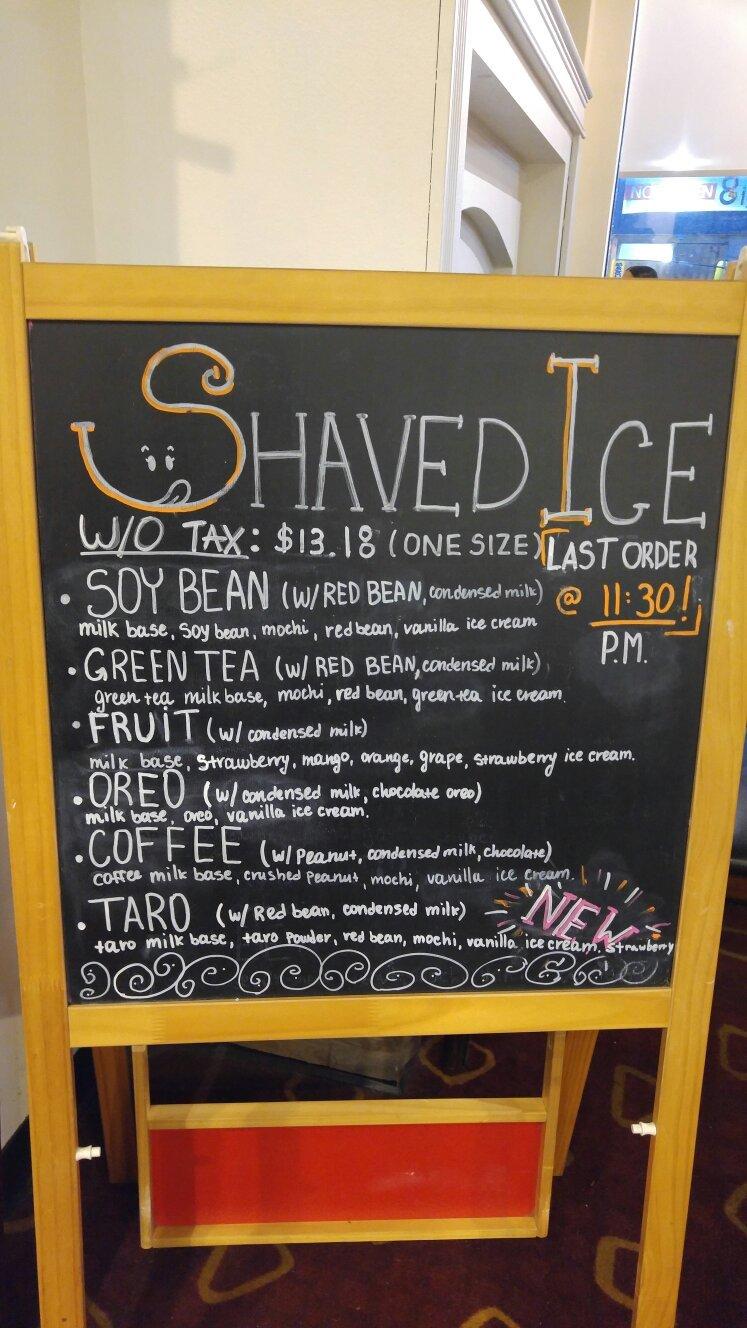 SHAVED ICE
W/O TAX: $13.18 (ONE SIZE)
LAST ORDER
@ 11:30!
P.M.
• SOY BEAN (W/ RED BEAN, condensed milk)
milk base, soy bean, mochi, red bean, vanilla ice cream
• GREEN TEA (W/ RED BEAN, condensed milk)
green tea milk base, mochi, red bean, green-tea ice cream.
• FRUIT (w/ condensed milk)
milk base, strawberry, mango, orange, grape, strawberry ice cream.
• OREO (w/ condensed milk, chocolate oreo)
milk base, oreo, vanilla ice cream.
• COFFEE (w/ Peanut, condensed milk, chocolate)
coffee milk base, crushed Peanut, mochi, vanilla ice cream.
• TARO (w/ Red bean, condensed milk)
NEW
taro milk base, taro Powder, red bean, mochi, vanilla ice cream. strawberry